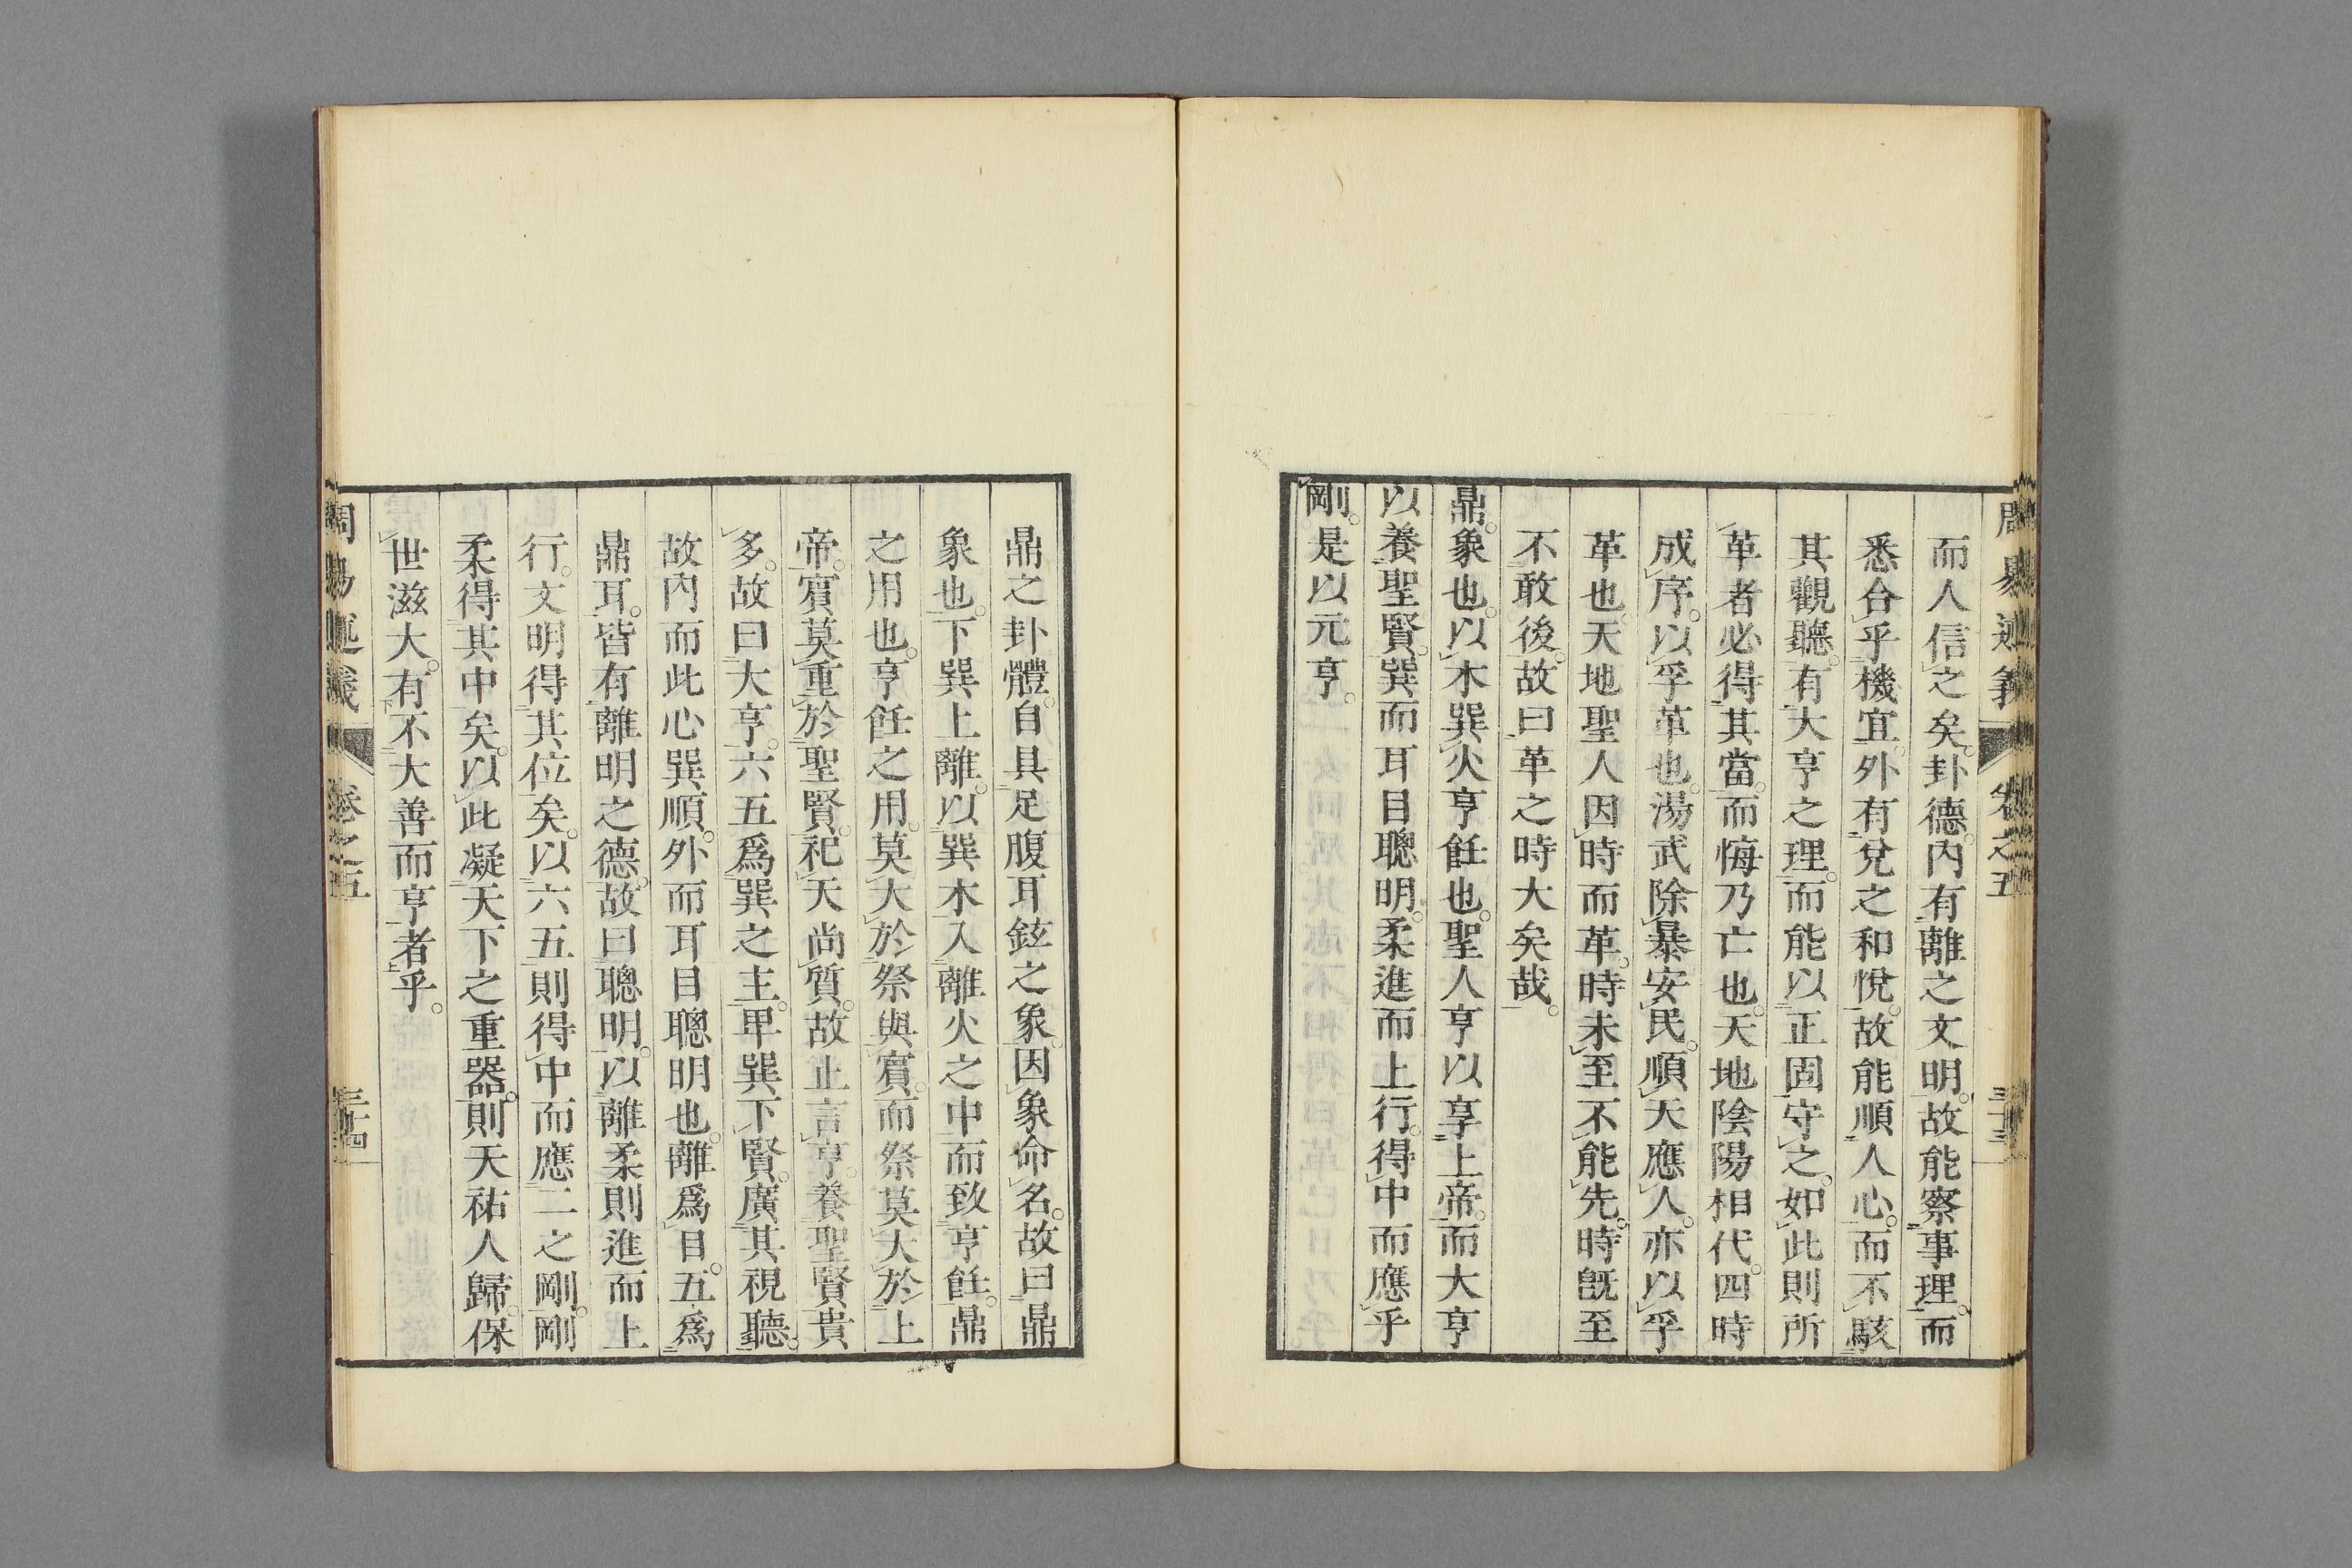 周易述義 卷之五 三十三
而人信之矣。卦德。內有離之文明。故能察事理。而
悉合乎機宜。外有兌之和悅。故能順人心。而不駭
其觀聽。有大亨之理。而能以正固守之。如此則所
革者必得其當。而悔乃亡也。天地陰陽相代。四時
成序。以孚革也。湯武除暴安民。順天應人。亦以孚
革也。天地聖人因時而革。時未至不能先。時旣至
不敢後。故曰革之時大矣哉。
鼎。象也。以木巽火亨飪也。聖人亨以享上帝。而大亨
以養聖賢。巽而耳目聰明。柔進而上行。得中而應乎
剛。是以元亨。
鼎之卦體。自具足腹耳鉉之象。因象命名。故曰鼎
象也。下巽上離。以巽木入離火之中而致亨飪。鼎
之用也。亨飪之用。莫大於祭與賓。而祭莫大於上
帝。賓莫重於聖賢。祀天尚質。故止言亨。養聖賢貴
多。故曰大亨。六五爲巽之主。卑巽下賢。廣其視聽。
故內而此心巽順。外而耳目聰明也。離爲目。五爲
鼎耳。皆有離明之德。故曰聰明。以離柔則進而上
行。文明得其位矣。以六五則得中而應二之剛。剛
柔得其中矣。以此凝天下之重器。則天祐人歸。保
世滋大。有不大善而亨者乎。
周易述義 卷之五 三十四